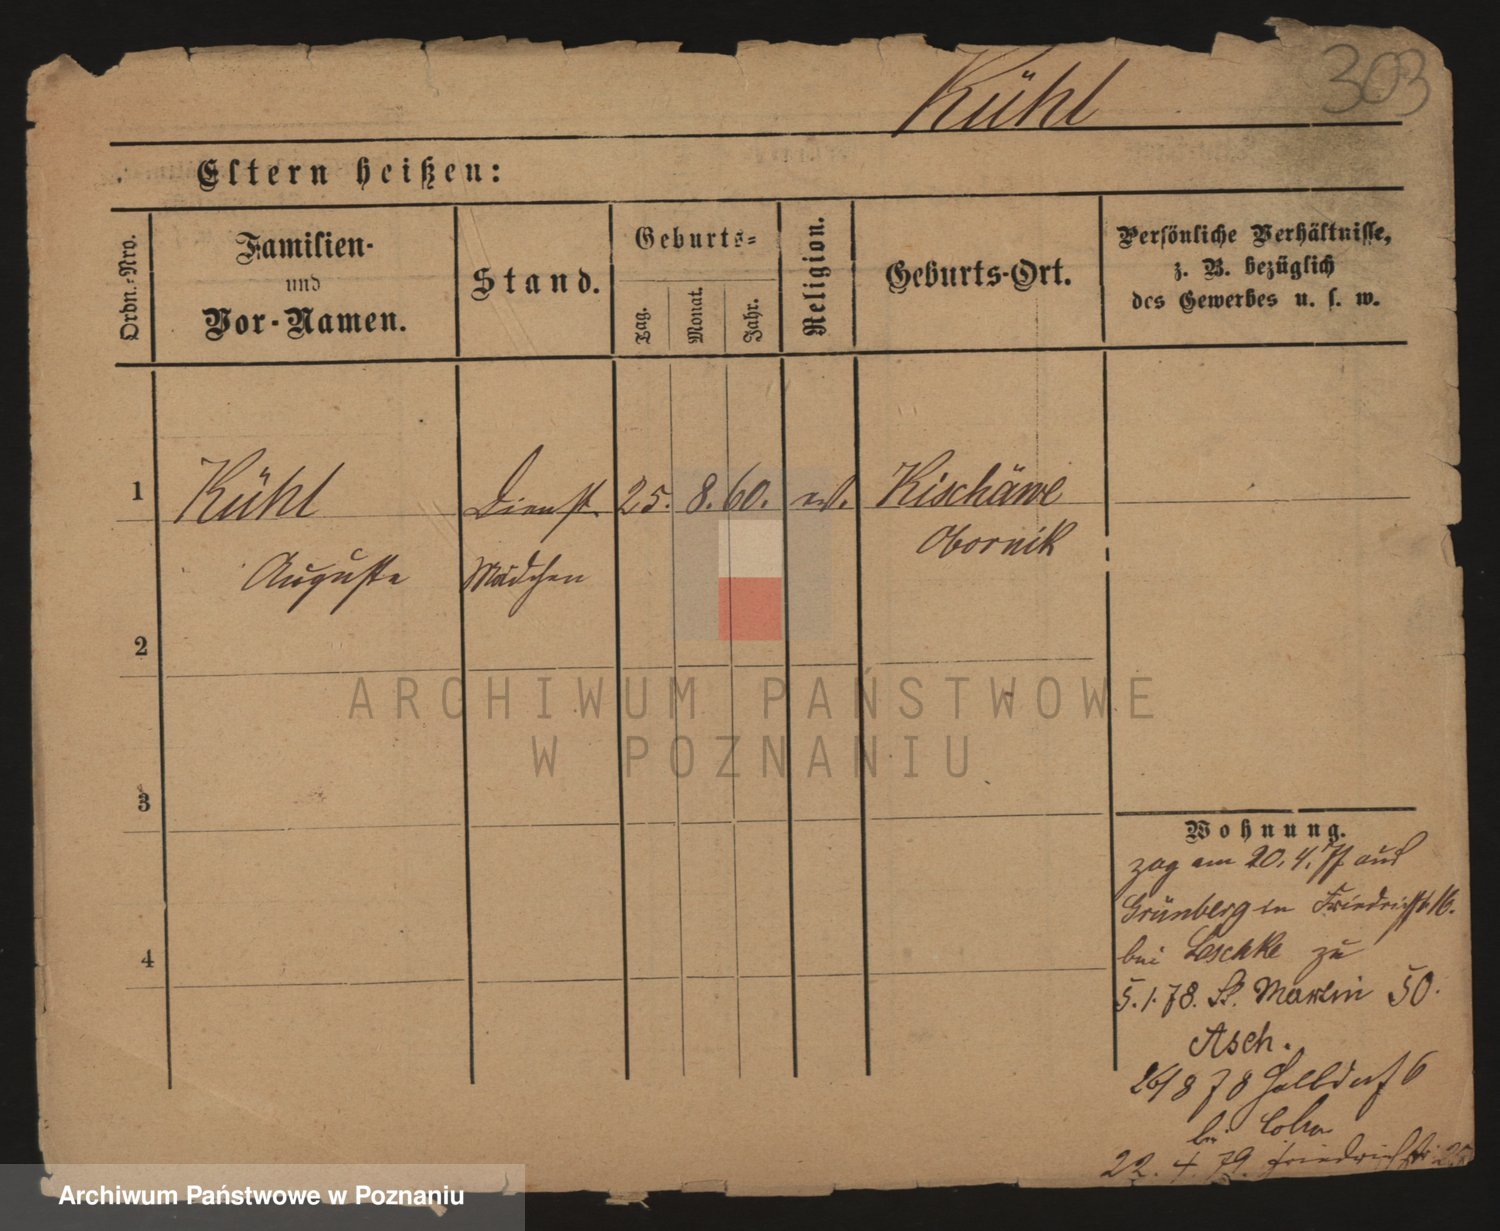 303
Kühl
Eltern heißen:
Ordn.-Nro.
Familien-
und
Vor-Namen.
Stand.
Geburts-
Tag.
Monat.
Jahr.
Religion.
Geburts-Ort.
Persönliche Verhältnisse,
z. B. bezüglich
des Gewerbes u. s. w.
1 Kühl Dienst 25. 8. 60. ev. Kischäwe
Obornik
Auguste Mädchen
2
3
4
ARCHIWUM PAŃSTWOWE
W POZNANIU
Wohnung.
zog am 20. 4. 77 aus
Grünberg in Friedrichstr 16.
bei Leschke zu
5. 1. 78. St. Martin 50.
Asch.
26/8 78 Halbdorf 6
bei Cohn
22. 4. 79. Friedrichstr
Archiwum Państwowe w Poznaniu